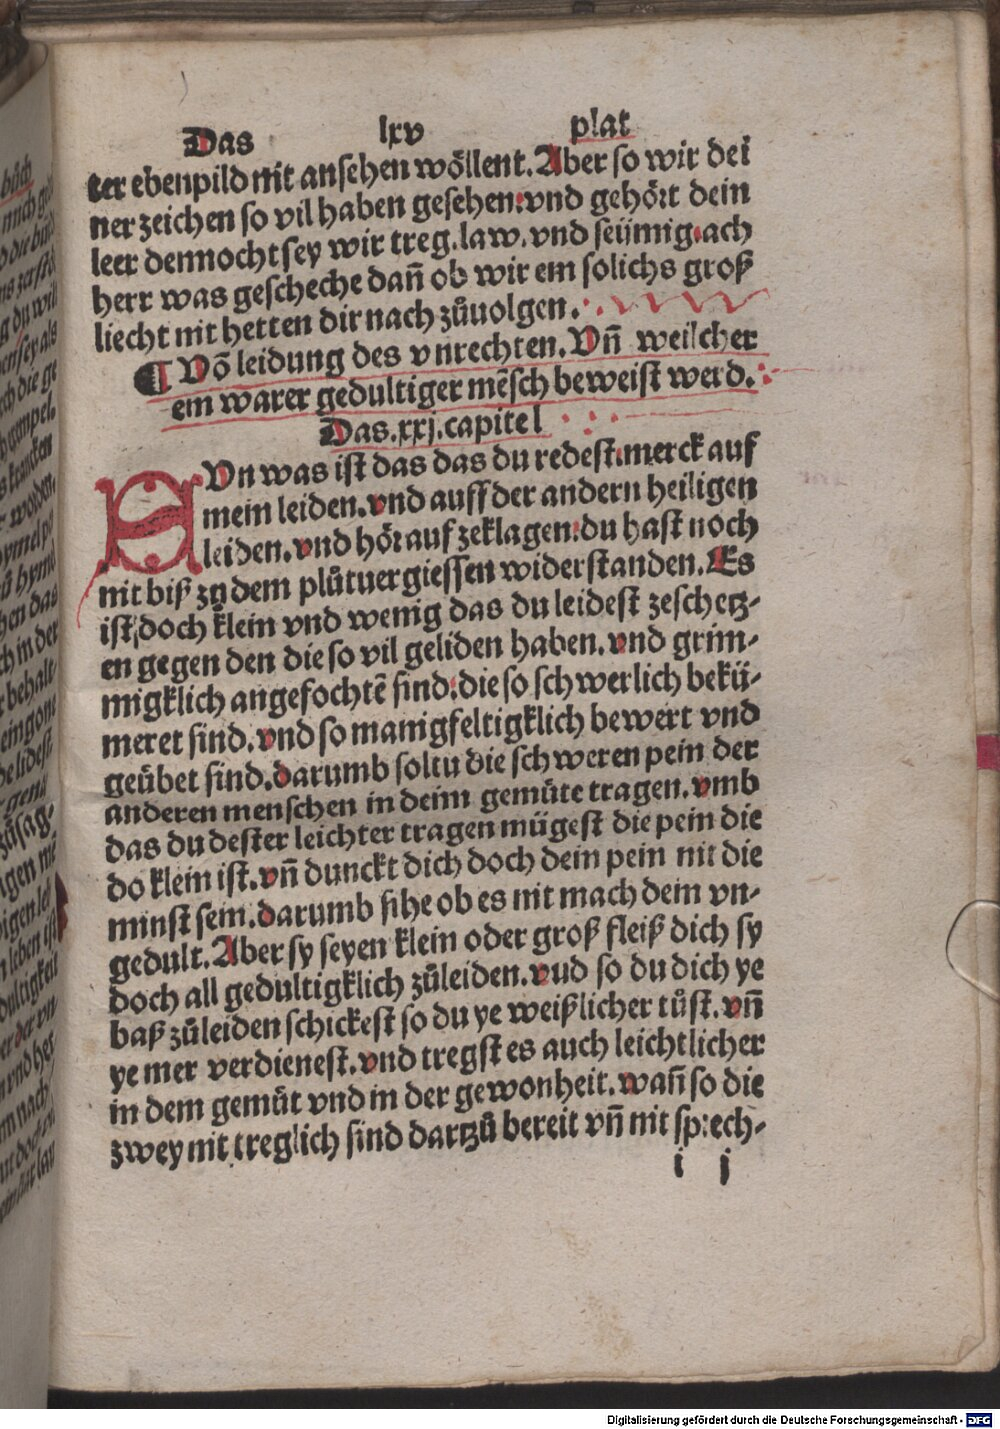 Das lxv plat
ter ebenpild nit ansehen wöllent. Aber so wir dei
ner zeichen so vil haben gesehen: vnd gehört dein
leer dennocht sey wir treg. law. vnd seümig. ach
herr was gescheche dañ ob wir ein solichs groß
liecht nit hetten dir nach zůuolgen.
¶ Võ leidung des vnrechten. Vñ weilcher
ein warer gedultiger mẽsch beweist werd.
Das .xxj. capitel
SVn was ist das das du redest. merck auf
mein leiden. vnd auff der andern heiligen
leiden. vnd hör auf zeklagen: du hast noch
nit biß zů dem plůtuergiessen widerstanden. Es
ist doch klein vnd wenig das du leidest zeschetz-
en gegen den die so vil geliden haben. vnd grim-
migklich angefochtẽ sind: die so schwerlich bekü-
meret sind. vnd so manigfeltigklich bewert vnd
geübet sind. darumb soltu die schweren pein der
anderen menschen in deim gemüte tragen. vmb
das du dester leichter tragen mügest die pein die
do klein ist. vñ dunckt dich doch dein pein nit die
minst sein. darumb sihe ob es nit mach dein vn-
gedult. Aber sy seyen klein oder groß fleiß dich sy
doch all gedultigklich zůleiden. vnd so du dich ye
baß zůleiden schickest so du ye weißlicher tůst. vñ
ye mer verdienest. vnd tregst es auch leichtlicher
in dem gemüt vnd in der gewonheit. wañ so die
zwey nit treglich sind dartzů bereit vñ nit sprech-
i j
Digitalisierung gefördert durch die Deutsche Forschungsgemeinschaft - DFG